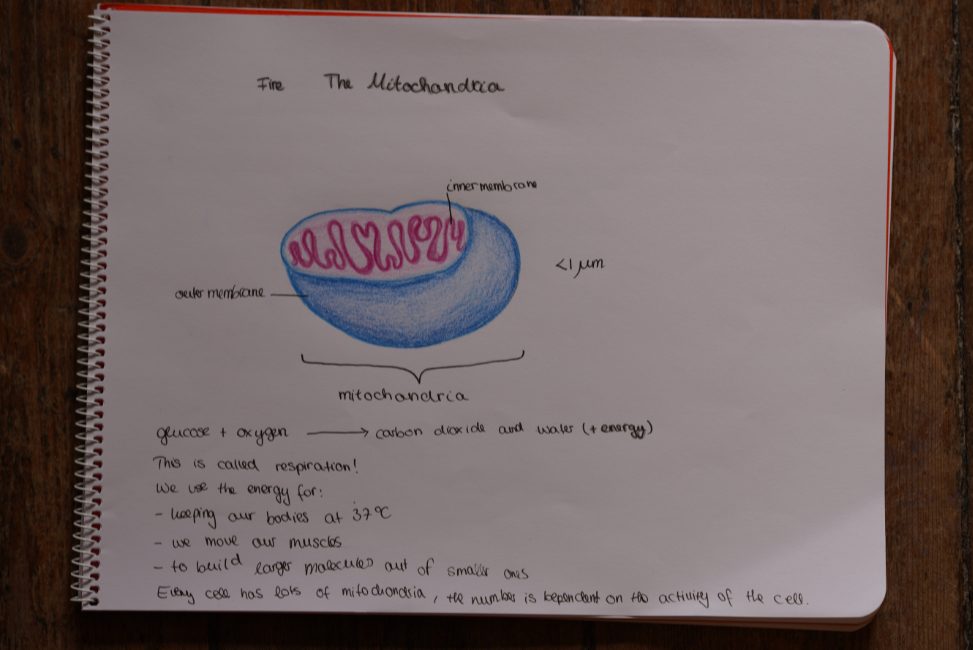 Fire The Mitochondria
inner membrane
<1 μm
outer membrane
mitochondria
glucose + oxygen ⟶ carbon dioxide and water (+ energy)
This is called respiration!
We use the energy for:
- keeping our bodies at 37°C
- we move our muscles
- to build larger molecules out of smaller ones
Every cell has lots of mitochondria, the number is bependent on the activity of the cell.